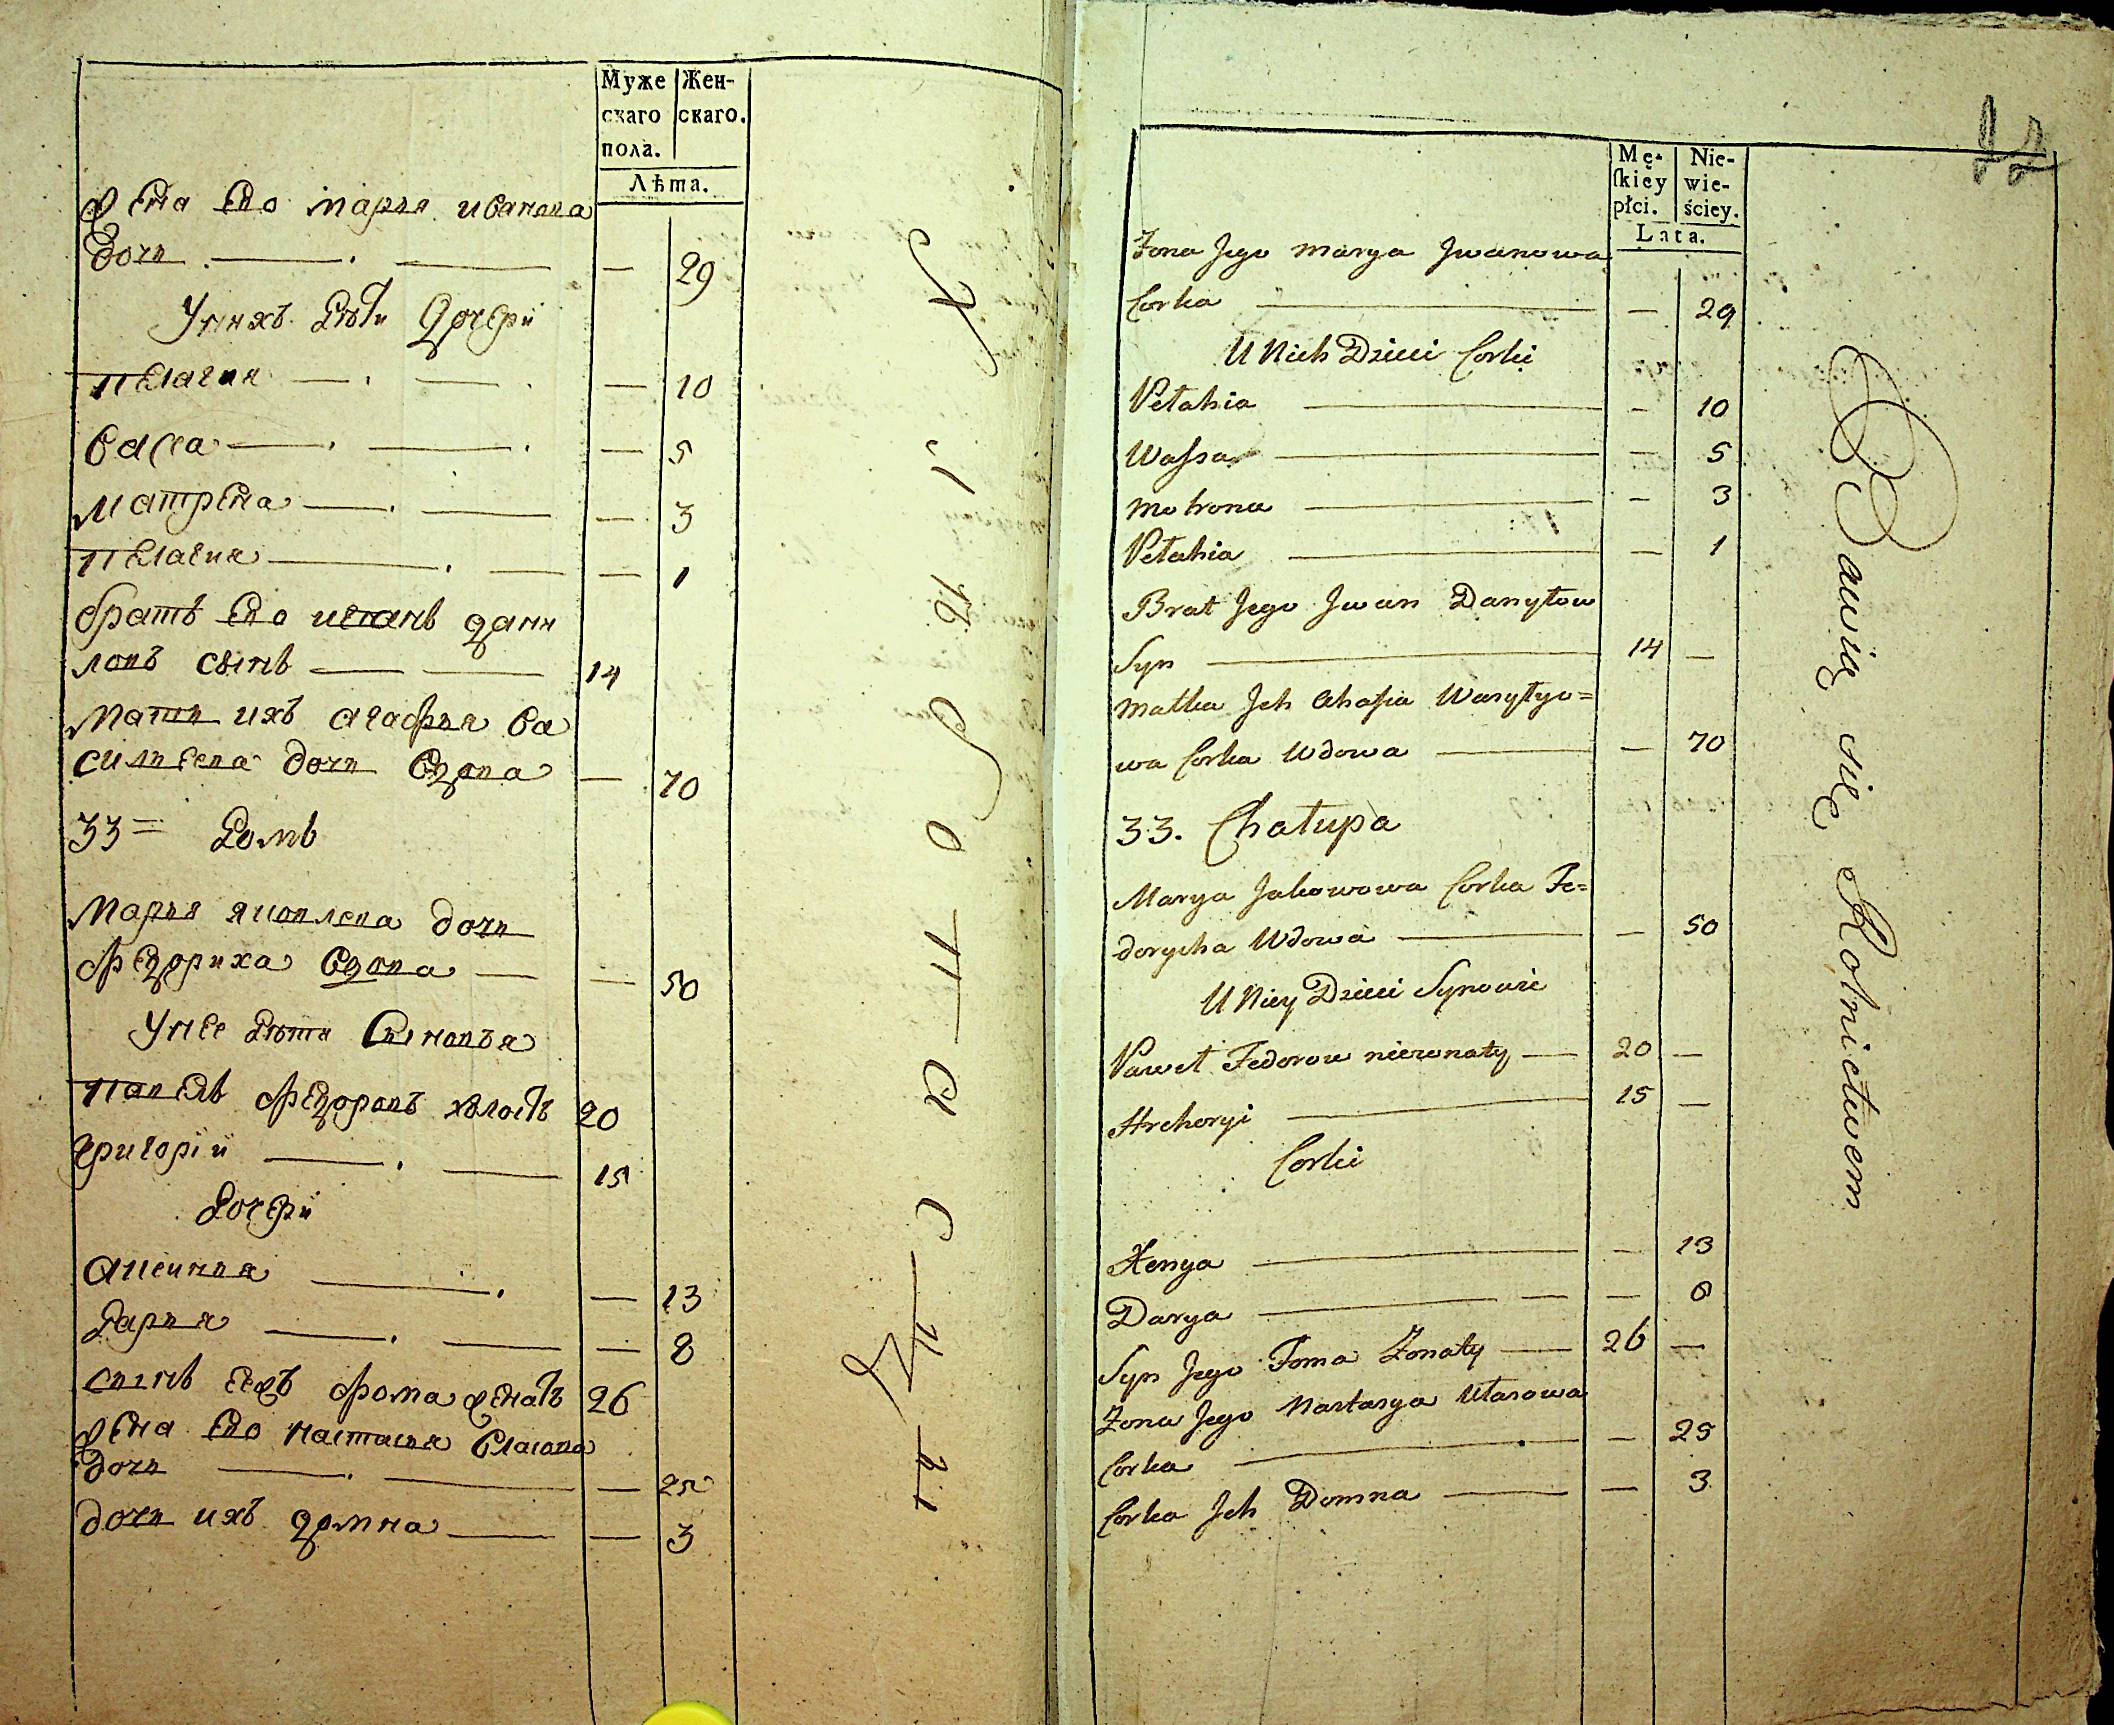 Муже Жен-
скаго скаго.
пола.
Лѣта.
жена ево марья иванова
дочь — 29
У нихъ дѣти дочери
пелагия — 10
васса — 5
матрена — 3
пелагия — 1
братъ ево иванъ дани
ловъ сынъ 14
мать ихъ агафья ва
сильева дочь вдова — 70
33 = домъ
Марья яковлева дочь
федориха вдова — 50
У нее дѣти сыновья
павелъ федоровъ холостъ 20
григорїй 15
дочери
аксинья — 13
дарья — 8
сынъ еяжъ фома женатъ 26
жена ево настасья власова
дочь — 25
дочь ихъ домна — 3
Mę- Nie-
skiey wie-
płci. ściey.
Lata.
Zona Jego Marya Jwanowa
Corka — 29
U Nich Dzieci Corki
Pełahia — 10
Wassa — 5
Motrona — 3
Pełahia — 1
Brat Jego Jwan Danyłow
Syn 14 —
Matka Jch Ahafia Wasylyo=
wa Corka Wdowa — 70
33. Chałupa
Marya Jakowowa Corka Fe=
dorycha Wdowa — 50
U Niey Dzieci Synowie
Paweł Fedorow niezonaty 20 —
Hrehoryi 15 —
Corki
Xenya — 13
Darya — 8
Syn Jego Foma Zonaty 26 —
Zona Jego Nastasya Własowa
Corka — 25
Corka Jch Domna — 3
Bawią się Rolnictwem